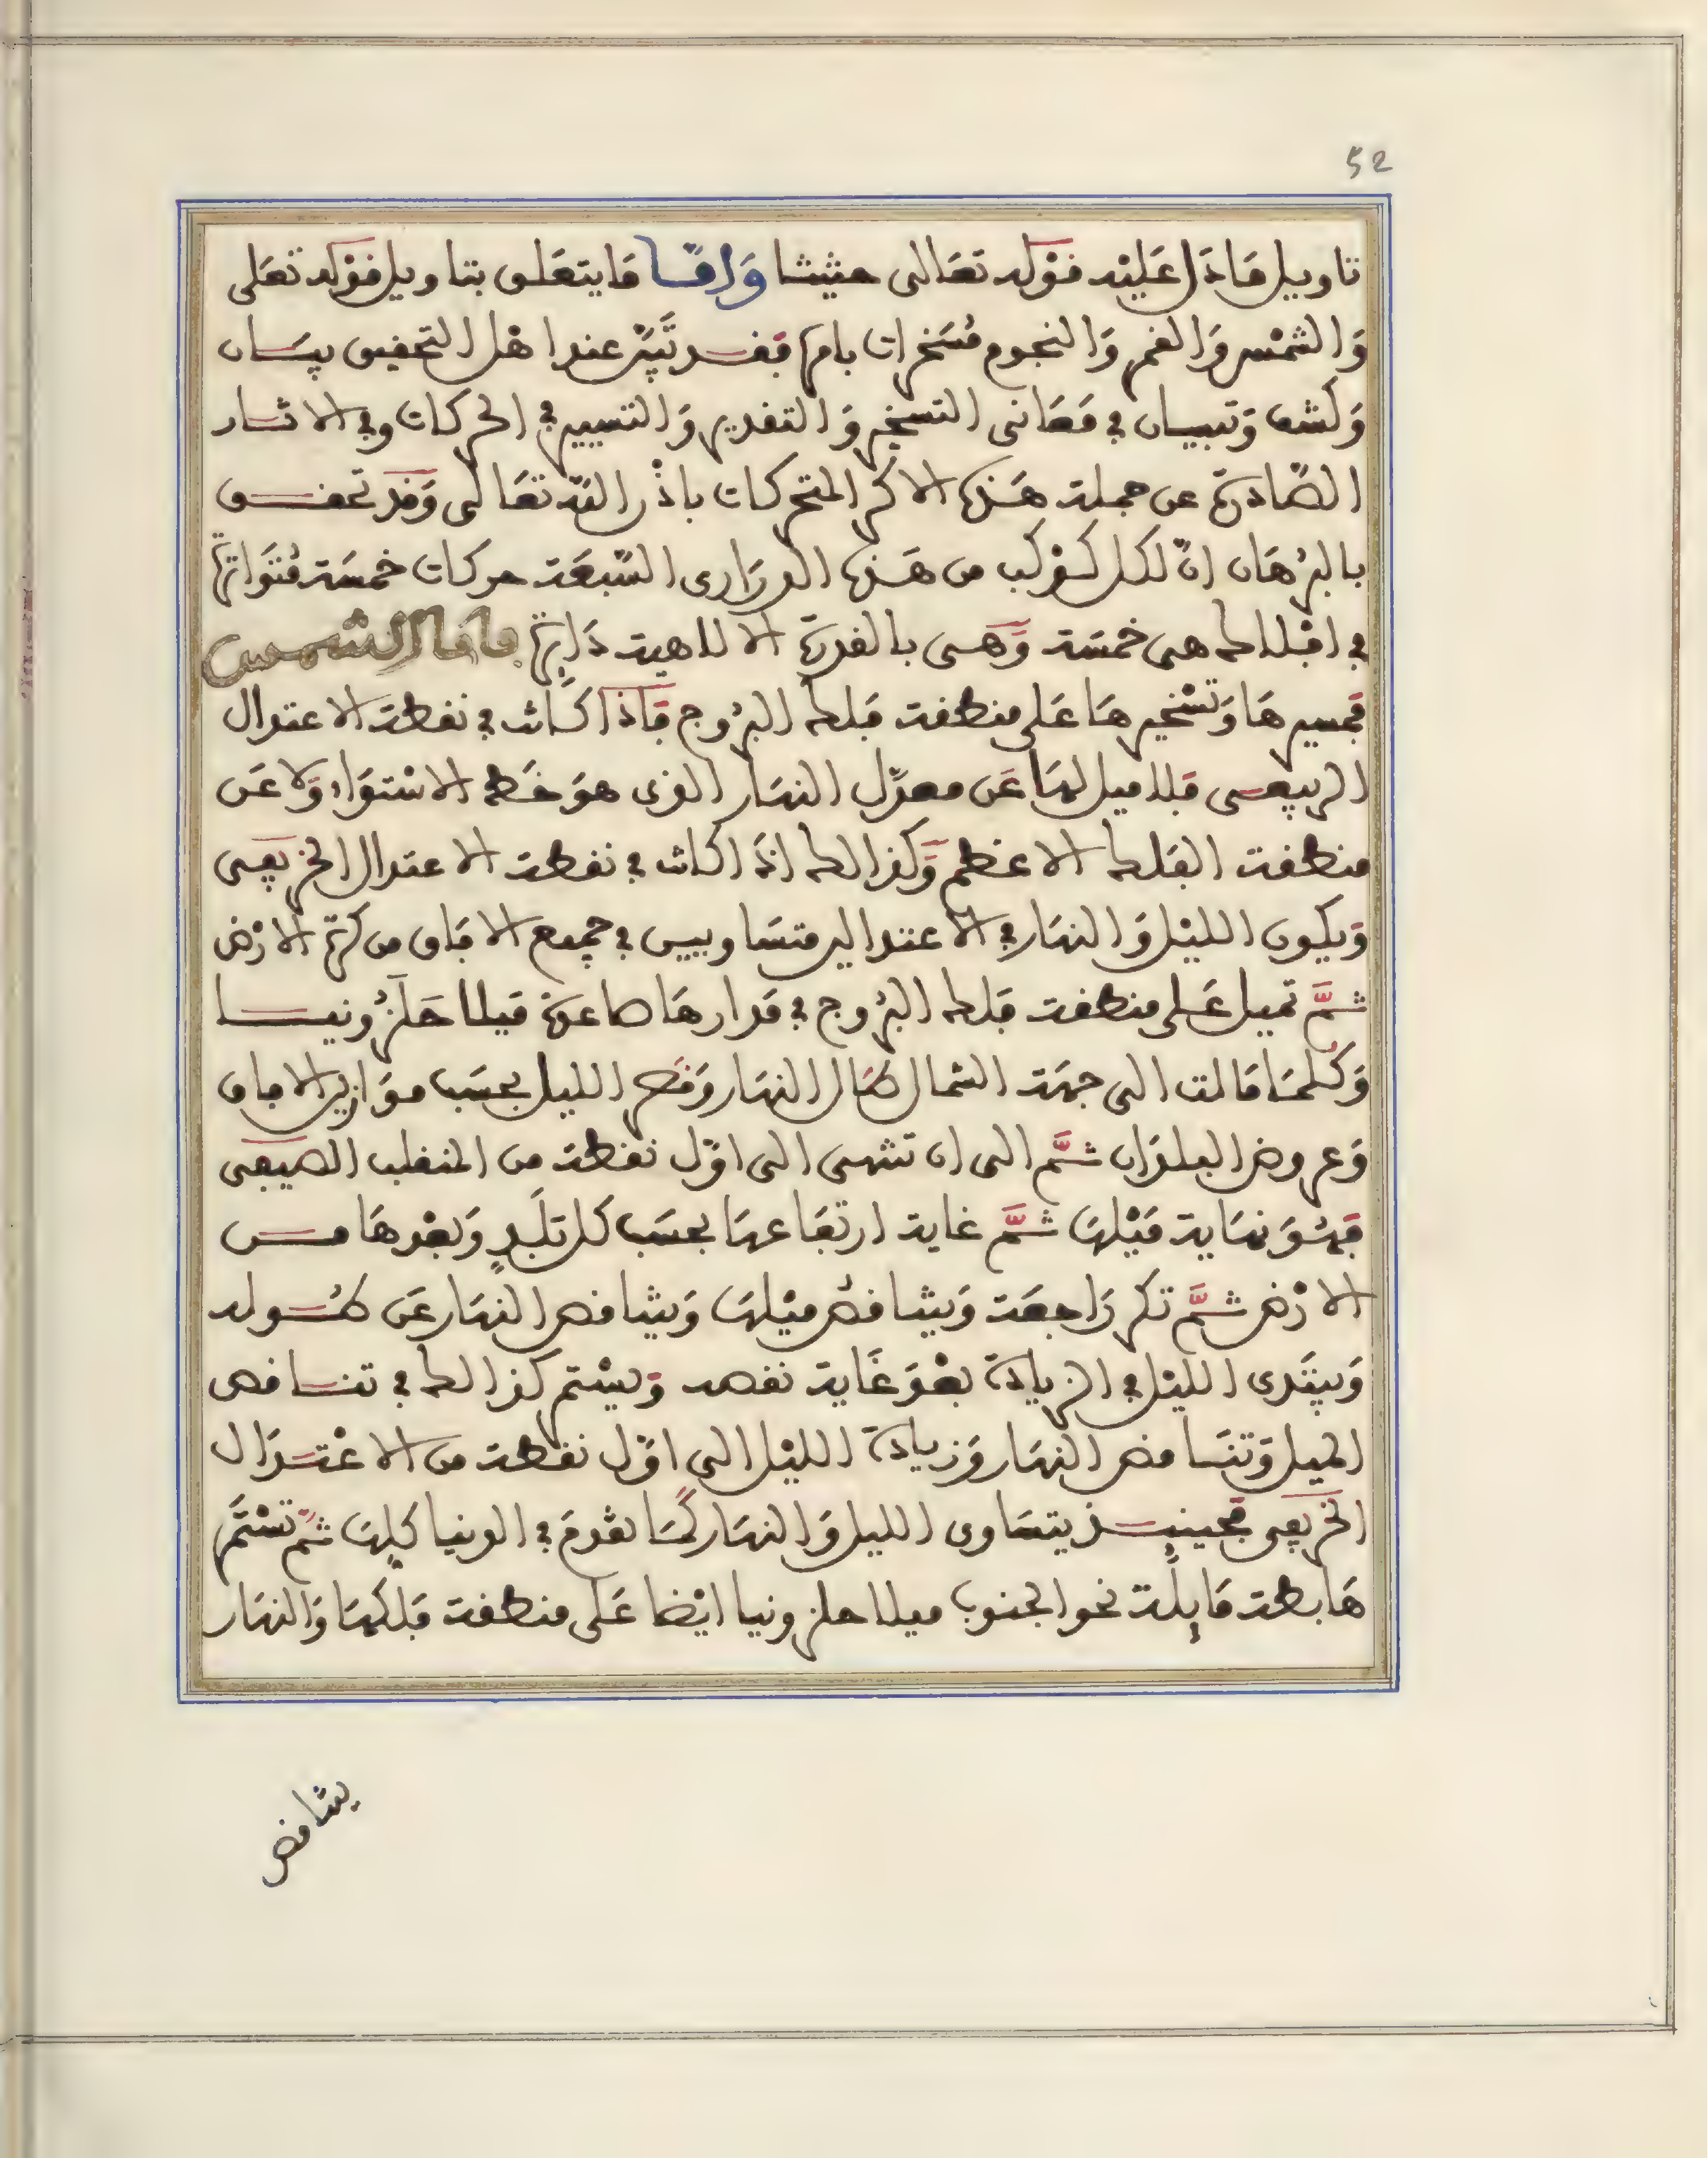 52
تاويل مَا دَل عَليْه قوْله تعَالى حثيثا وَامّا مَا يتعَلق بتاويل قوْله تعَلى
وَالشمْس وَالقمر وَالنجوم مُسَخرات بامره فقد تَبَيّن عند اهْل التحقيق ببيَان
وَكشف وَتبيان في مَعَانى التسخير وَالتقدير وَالتسيير في الحركات وفي الاثار
الصّادرة عن جملة هَذه الاكر المتحركات باذْن الله تعَالى وَقد تحقق
بالبُرهَان انّ لكل كوْكب من هَذه الدرَارى السّبعَة حركات خمسَة مُتَوَاترة
في افْلاك هى خمسَة وَهى بالقدرة الالاهية دَايرة فامّا الشمس
فمسيرهَا وَتسْخيرهَا عَلى منطقة فلك البرُوج فَاذا كَانت في نقطة الاعتدال
الربيعى فلا ميل لهَا عَن معدّل النهَار الذى هوَ خَط الاسْتوَاء وَلا عَن
منطقة الفلك الاعظم وَكذالك اذَا كانت في نقطة الاعتدال الخريفى
وَيكون الليْل وَالنهَار في الاعتدالين متسَاويين في جميع الافَاق من كرة الارْض
ثمَّ تميل عَلى منطقة فلك البرُوج في مَدارهَا صاعدة مَيلا حَلَزُونيا
وَكُلمَا مَالت الى جهَة الشمال طَال النهَار وَقَصر الليل بحسَب موَازين الافاق
وَعروض البلدَان ثمَّ الى ان تنتهى الى اوّل نقطة من المنقلب الصيفى
فهُوَ نهَاية مَيْلهَا ثمَّ غاية ارتفَاعهَا بحسَب كل بَلَدٍ وَبعْدهَا من
الارْض ثمَّ تكر رَاجعَة وَيتناقصُ ميْلهَا وَيتناقص النهَار عَن طُوله
وَيبتَدى الليْل في الزيادة بعْدَ غَاية نقصه وَيسْتمر كذالك في تناقص
الميل وَتنَاقص النهَار وَزيادة الليْل الى اوّل نقطة من الاعْتدَال
الخريفى فحينيذ يتسَاوى الليل وَالنهَار كمَا تقدمَ في الدنيا كلهَا ثمّ تسْتَمر
هَابطة مَايلة نحو الجنوب ميلا حلزونيا ايْضا عَلى منطقة فلكهَا وَالنهَار
يتناقص